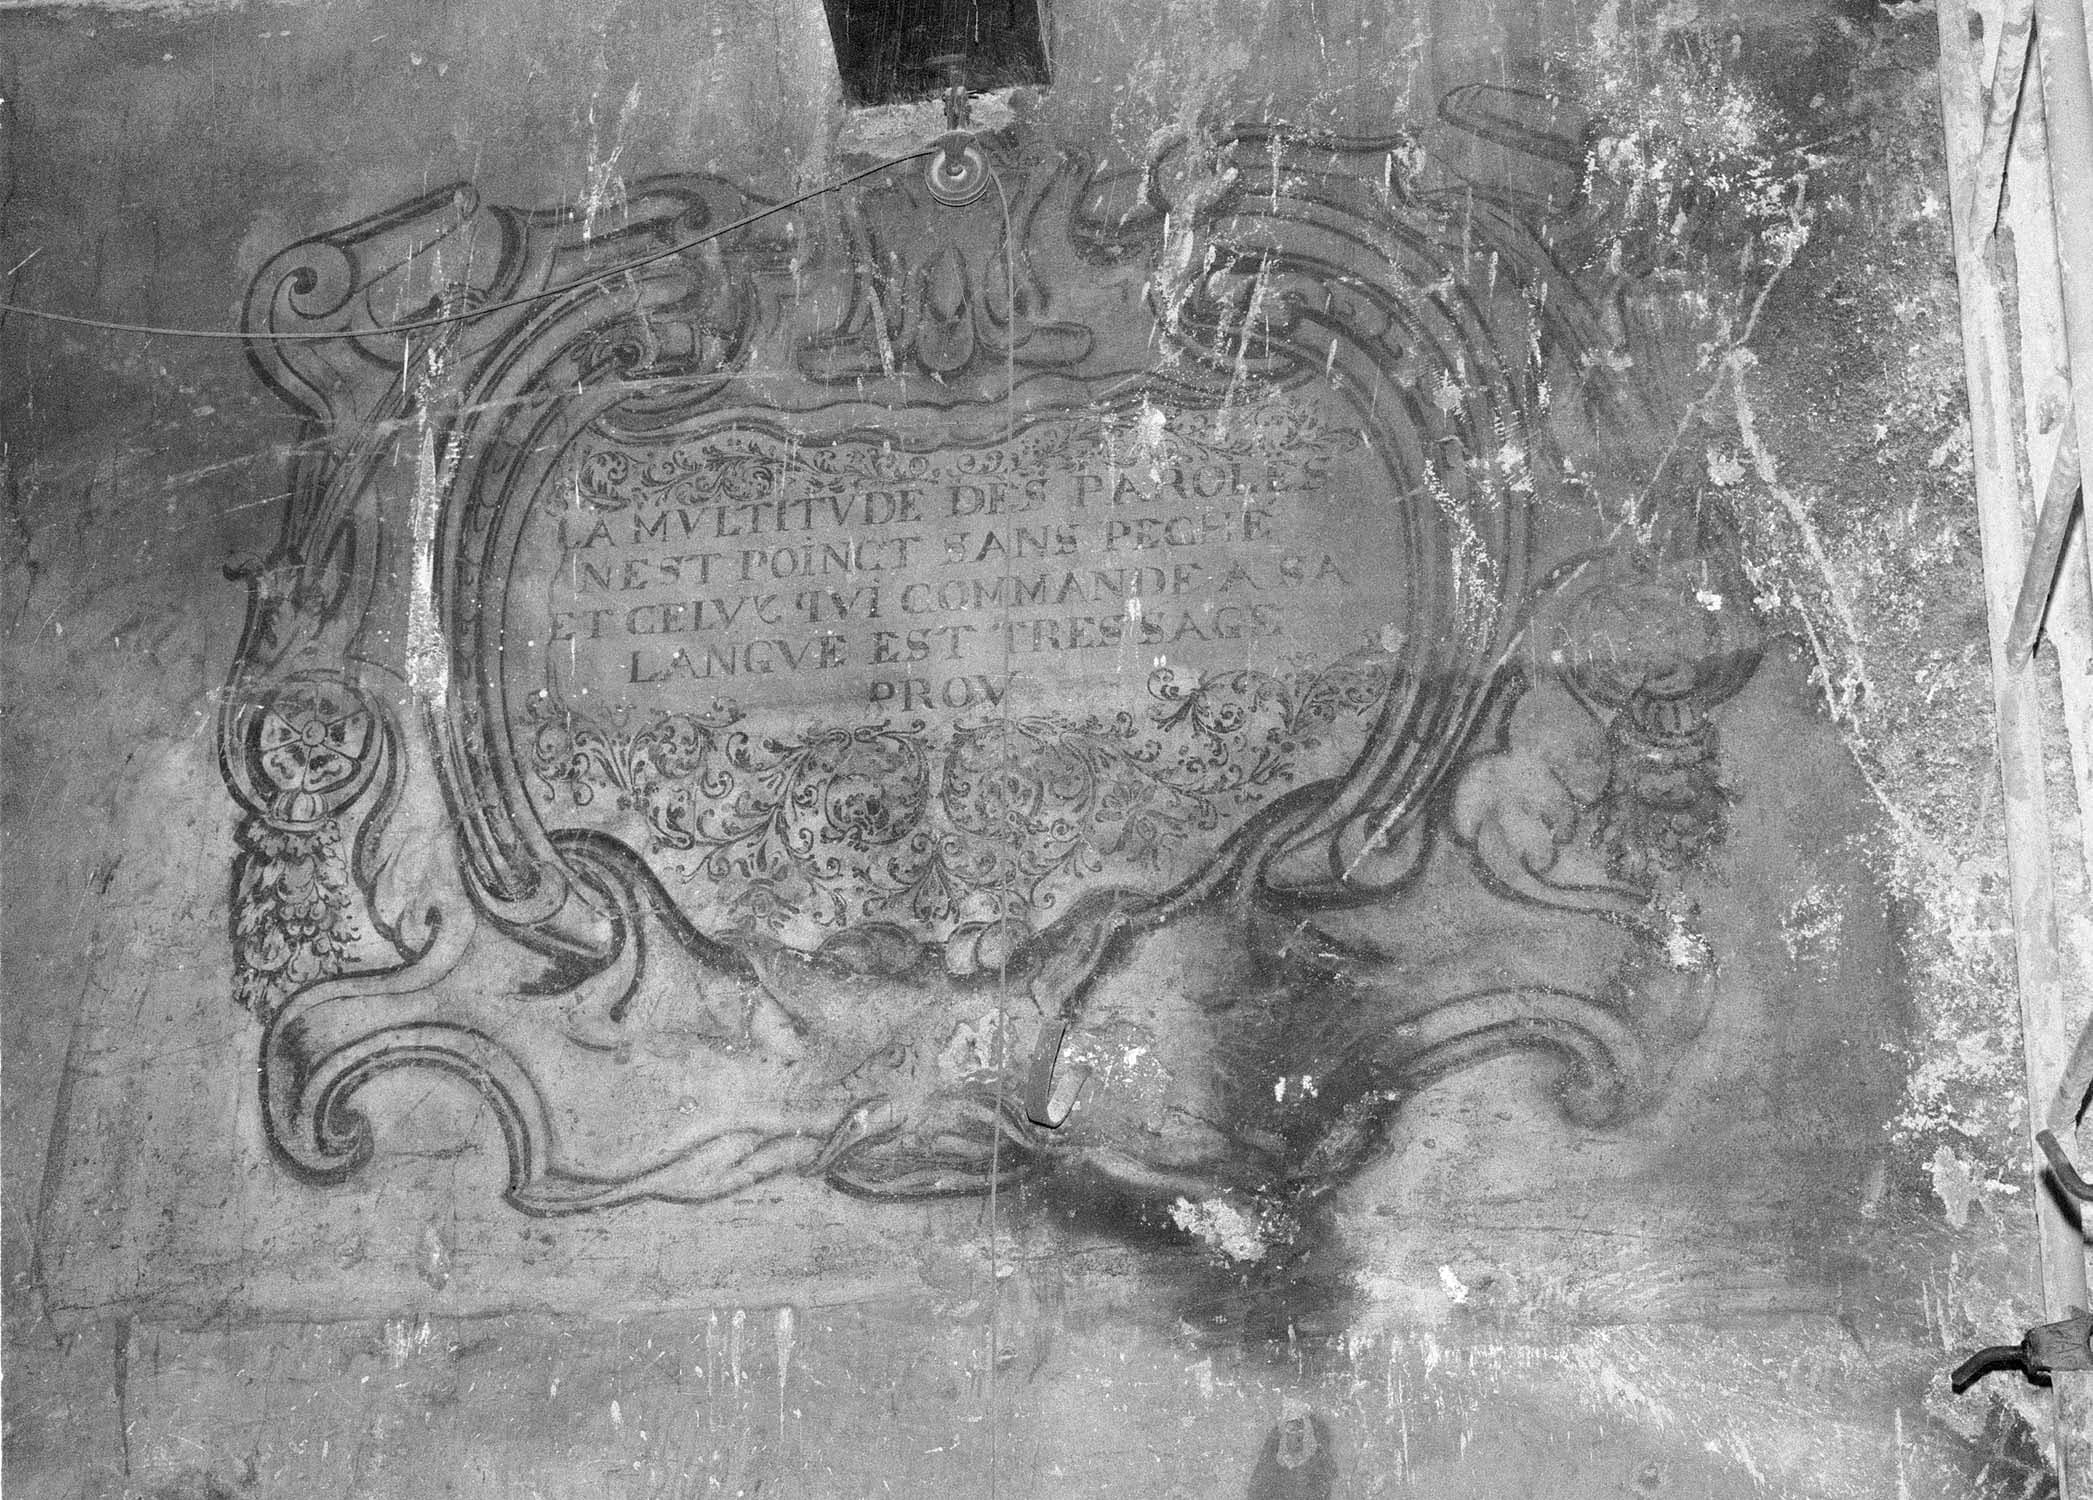 LA MVLTITVDE DES PAROLES
NEST POINCT SANS PECHÉ
ET CELVY QVI COMMANDE A SA
LANGVE EST TRES SAGE
PROV